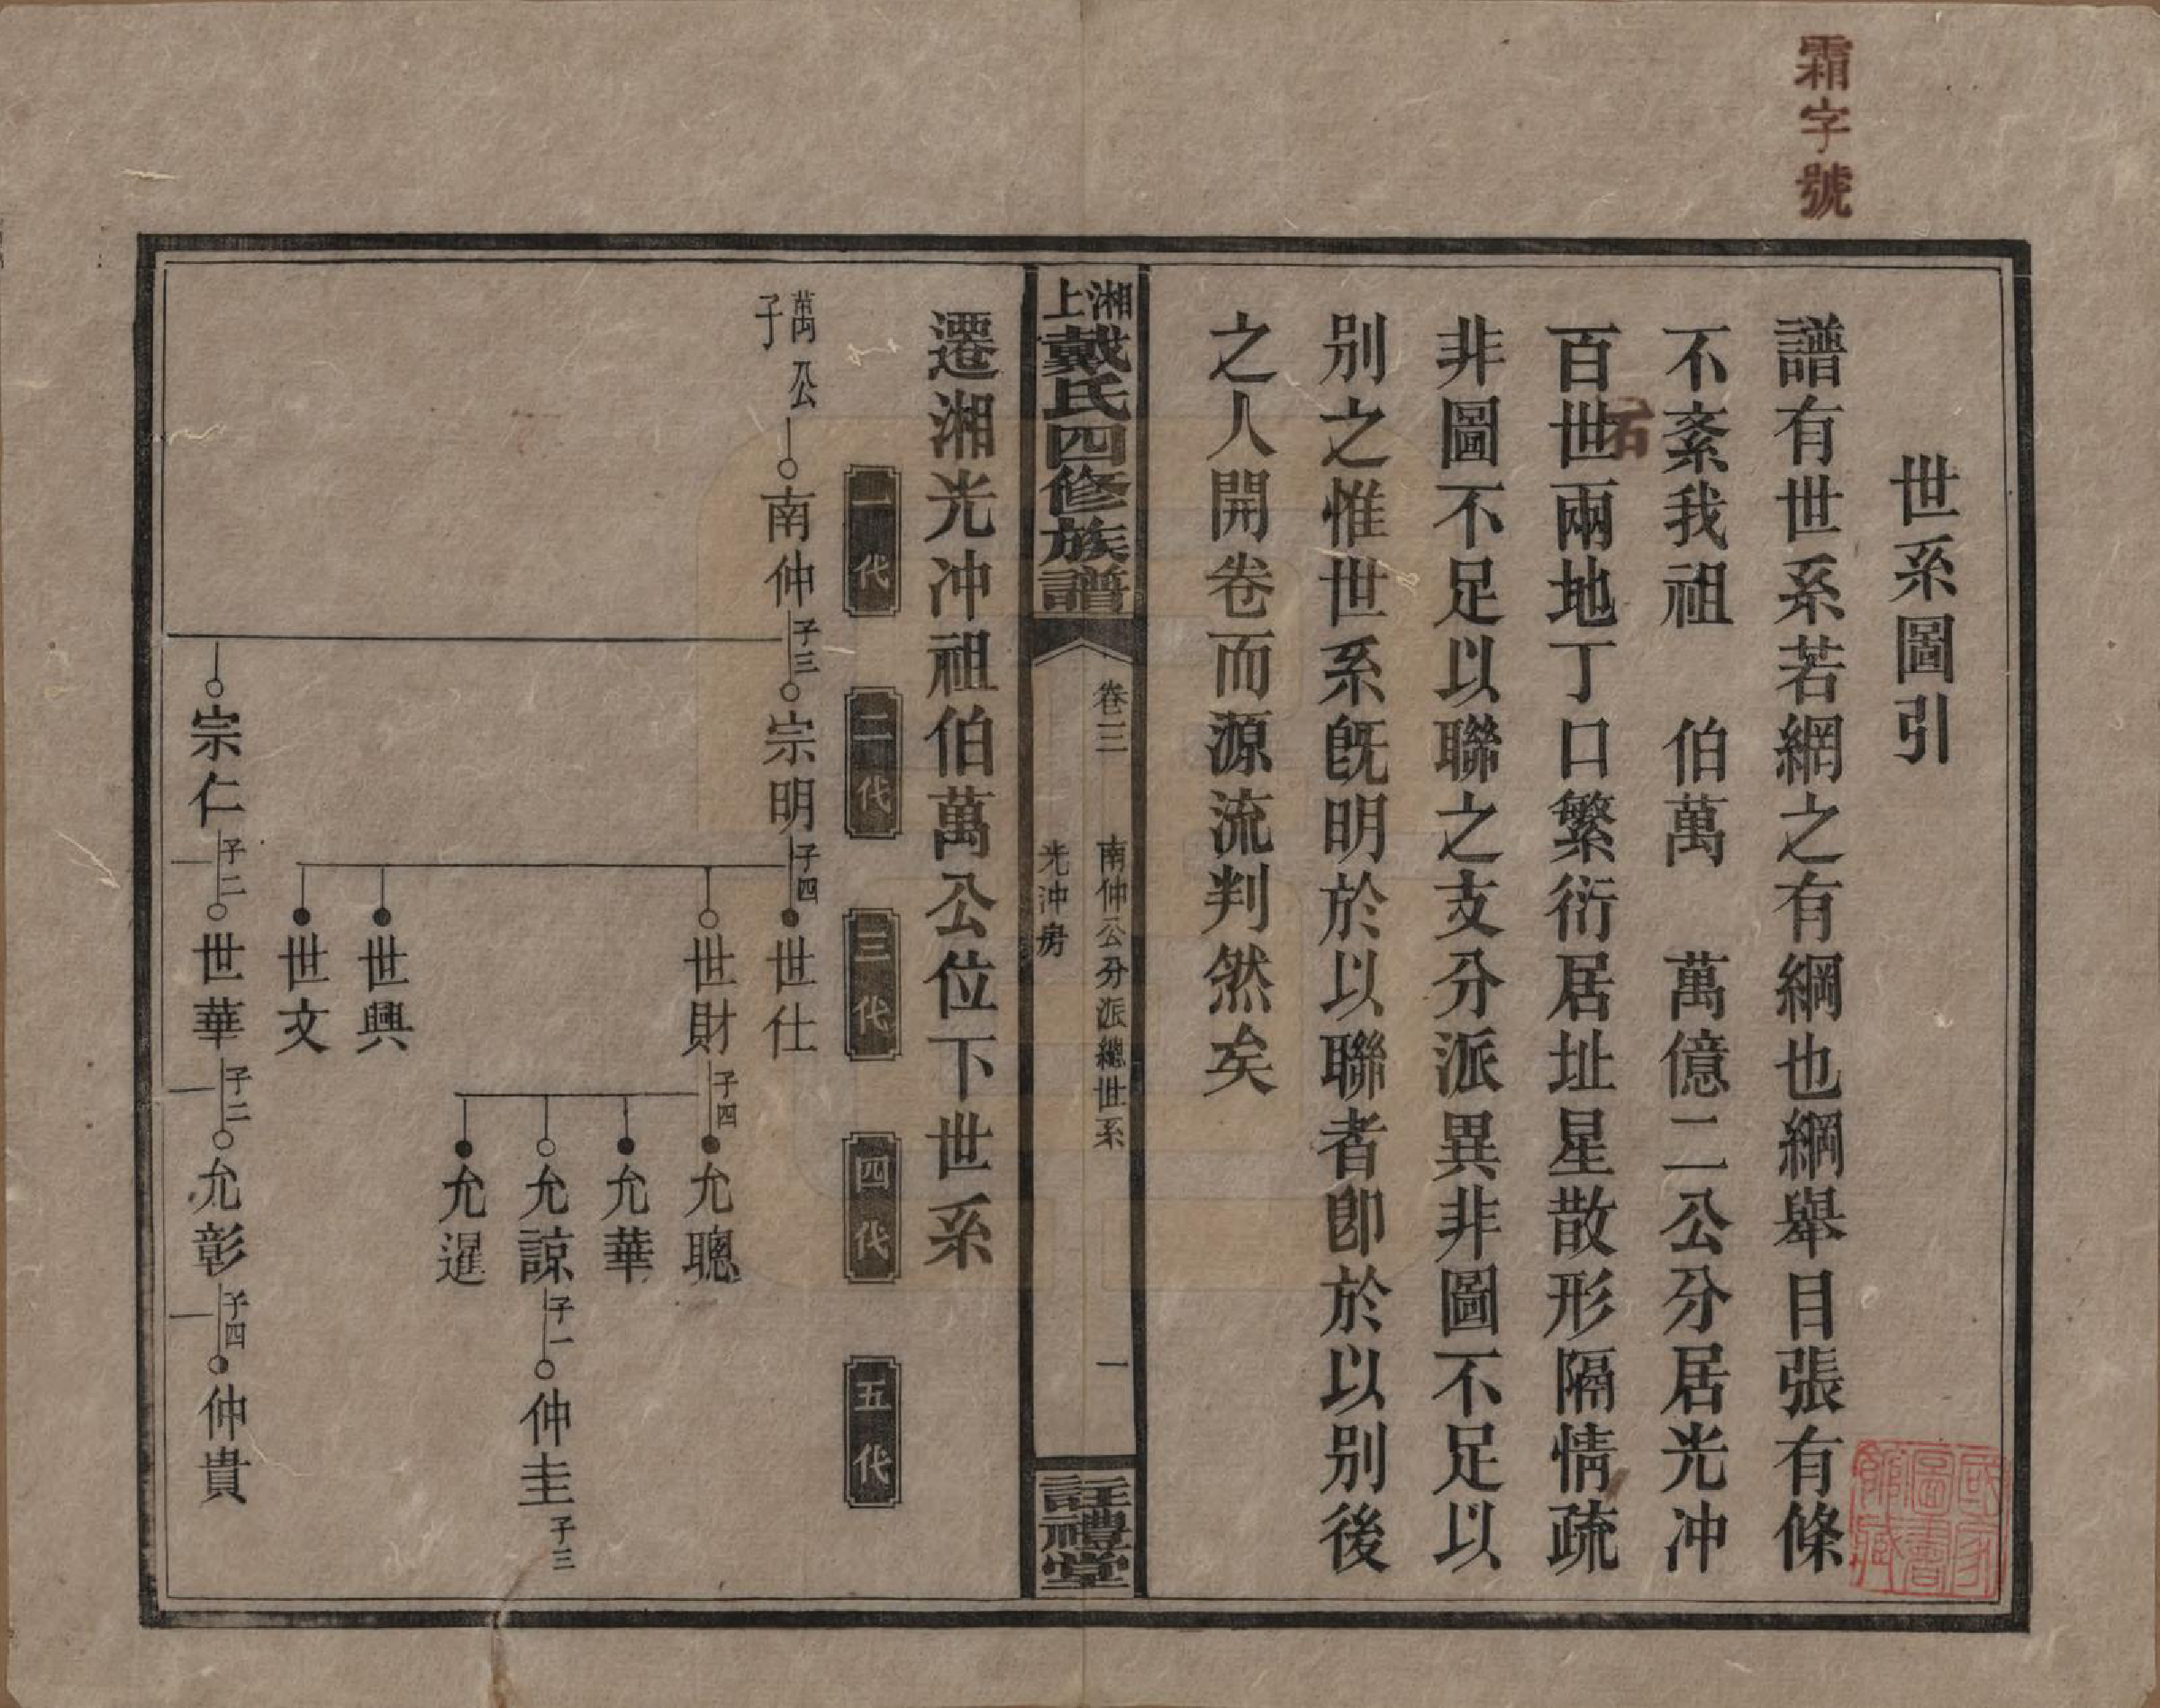 霜字號
世系圖引
譜有世系若網之有綱也綱舉目張有條
不紊我祖 伯萬 萬億二公分居光冲
百世兩地丁口繁衍居址星散形隔情疏
非圖不足以聯之支分派異非圖不足以
別之惟世系既明於以聯者卽於以別後
之人開卷而源流判然矣
湘上戴氏四修族譜
卷三
南仲公分派總世系
光沖房
一
註禮堂
遷湘光冲祖伯萬公位下世系
一代
二代
三代
四代
五代
萬公子
南仲
子三
宗明
子四
世仕
世財
子四
允聰
允華
允諒
子一
仲圭
子三
允暹
世興
世文
宗仁
子二
世華
子二
允彰
子四
仲貴
國家圖書館藏